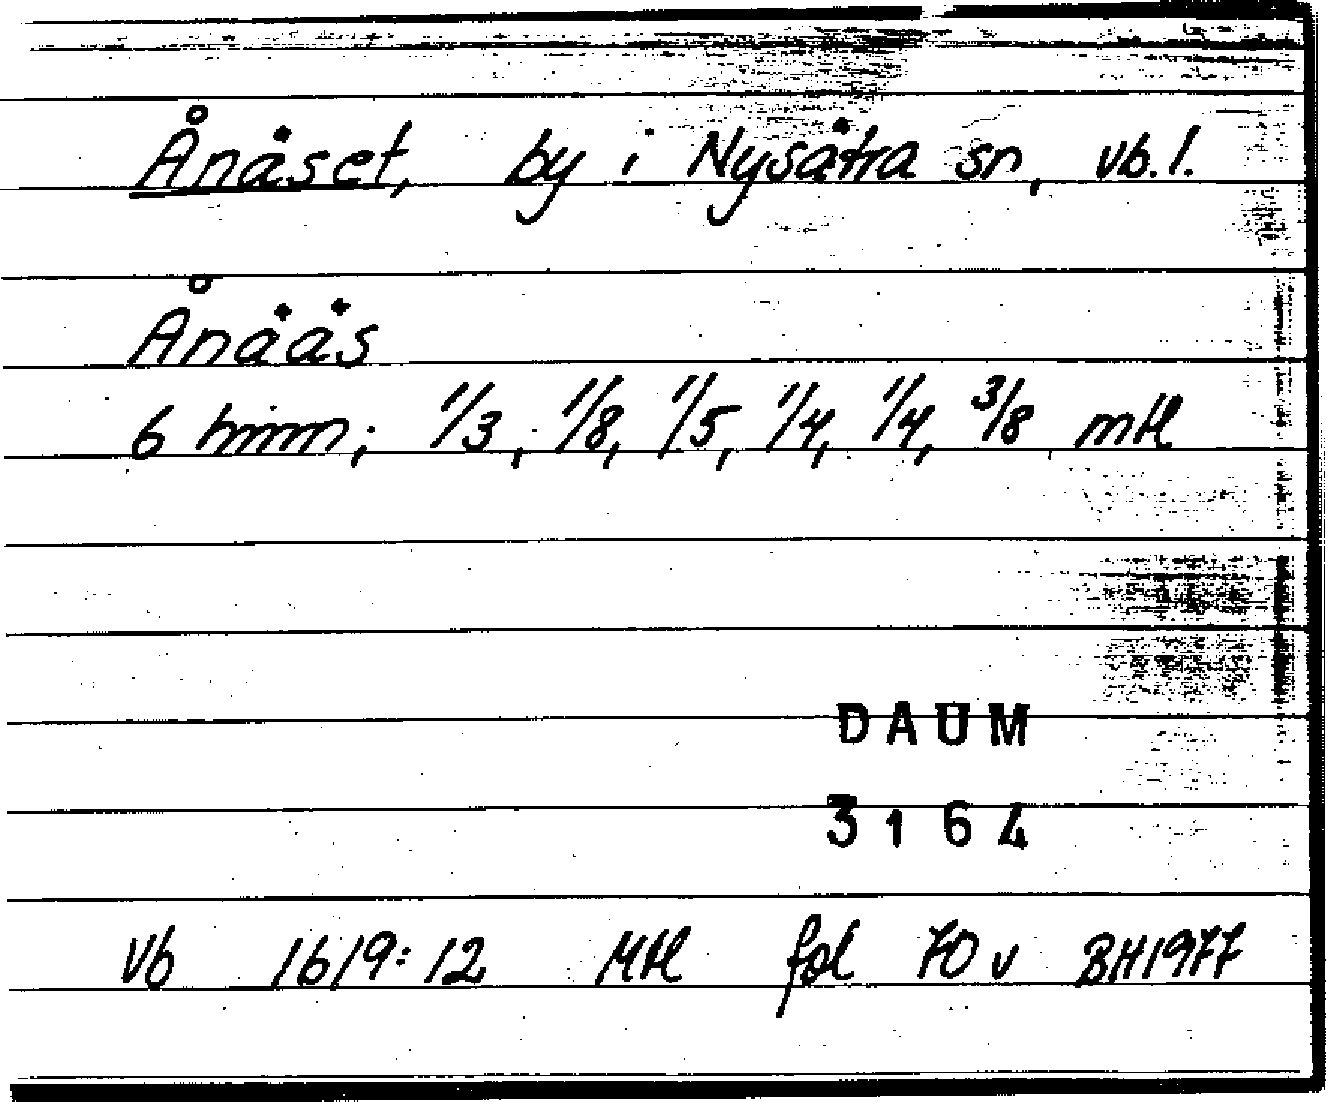 Ånäset, by i Nysätra sn, vb. l.
Ånääs
6 hmn; 1/3, 1/8, 1/5, 1/4, 1/4, 3/8 mtl
DAUM
3164
Vb 1619:12 Mtl fol 70 v BH1977